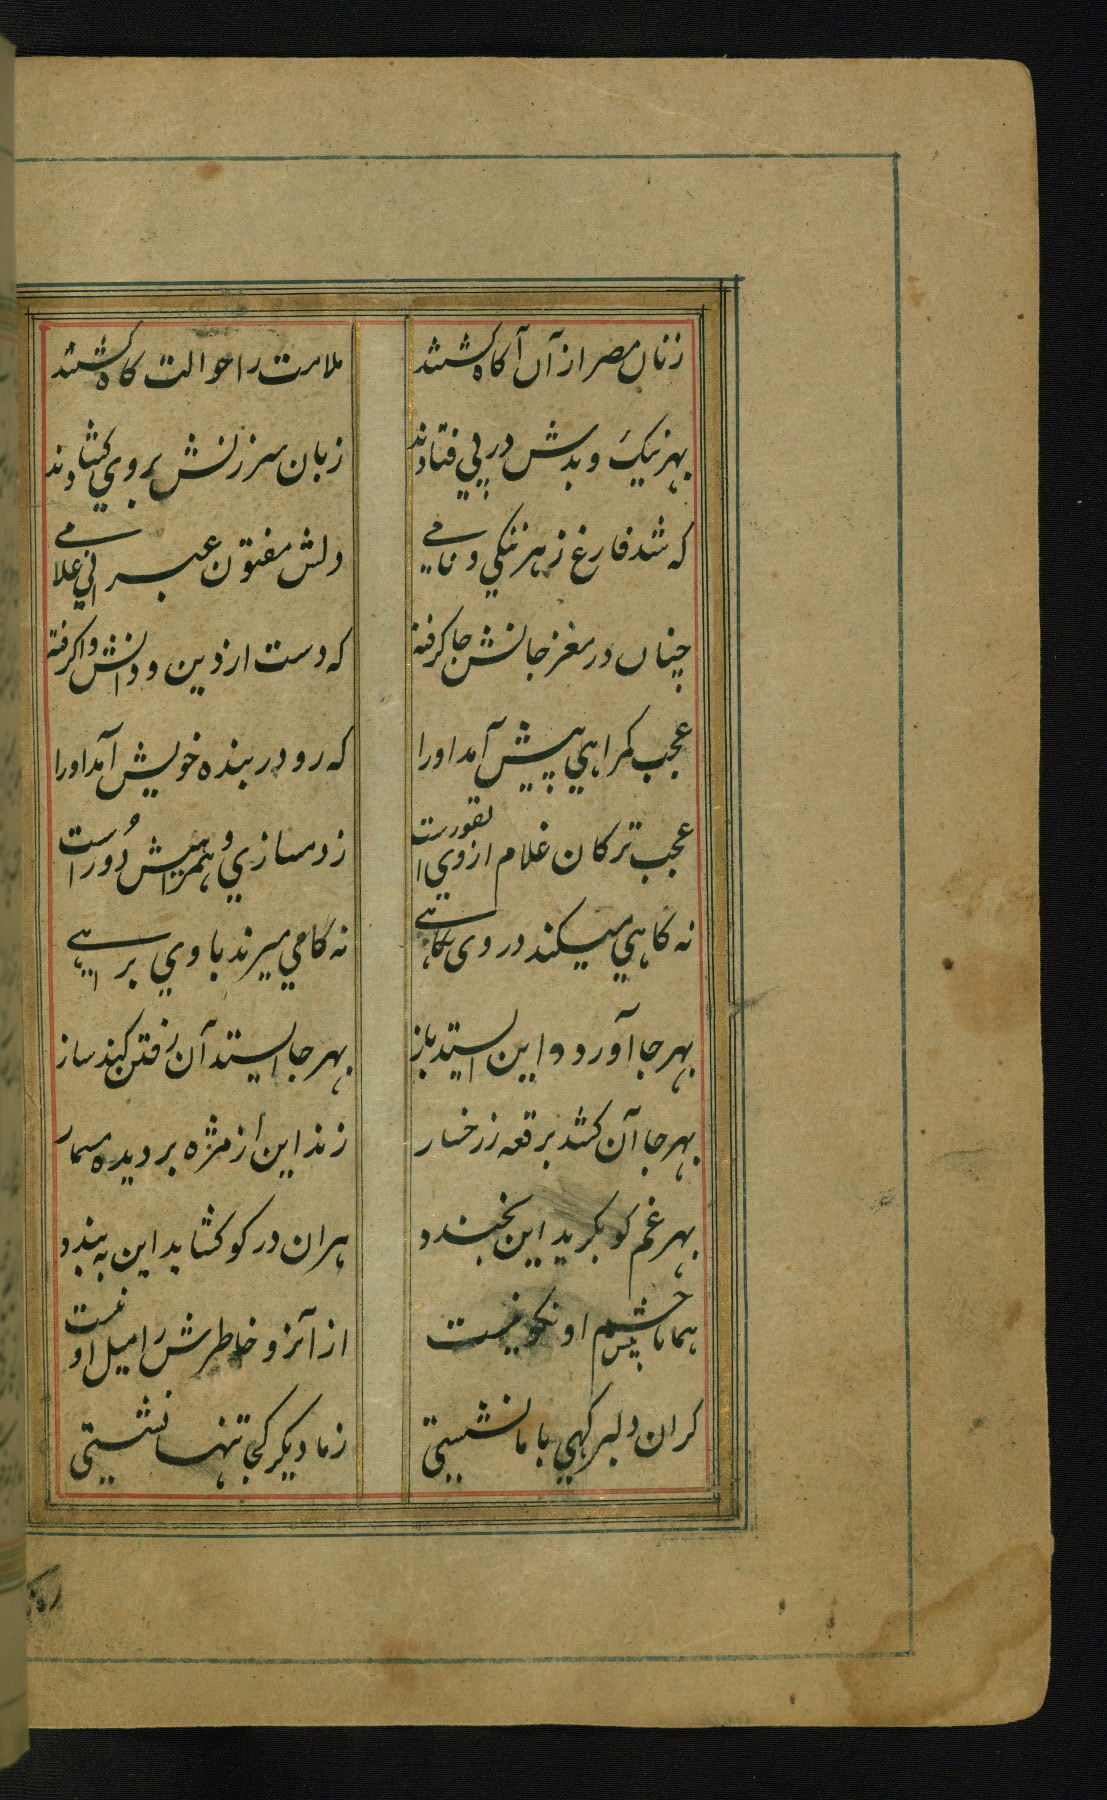 زنان مصر از آن آکاه کشتند
ملامت را حوالت کاه کشتند
بهر نیک و بدش در پی فتادند
زبان سرزنش بروی کشادند
که شد فارغ ز هر ننکی و نامی
دلش مفتون عبرانی غلامی
چنان در مغز جانش جا کرفته
که دست از دین و دانش وا کرفته
عجب کمراهی پیش آمد اورا
که رو در بنده خویش آمد اورا
عجب تر کان غلام از وی نفورست
ز دمسازی و همرازیش دور است
نه کاهی میکند در وی نکاهی
نه کامی میزند با وی براهی
بهر جا آورد و این ایستد باز
بهر جا ایستد آن رفتن کند ساز
بهر جا آن کشد برقعه ز رخسار
زند این از مژه بر دیده مسمار
بهر غم کو بکرید این بخندد
هران در کو کشاید این به بندد
همانا پیش چشم او نکو نیست
از آنرو خاطرش را میل او نیست
کر ان دلبر کهی با ما نشستی
ز ما دیکر کجا تنها نشستی